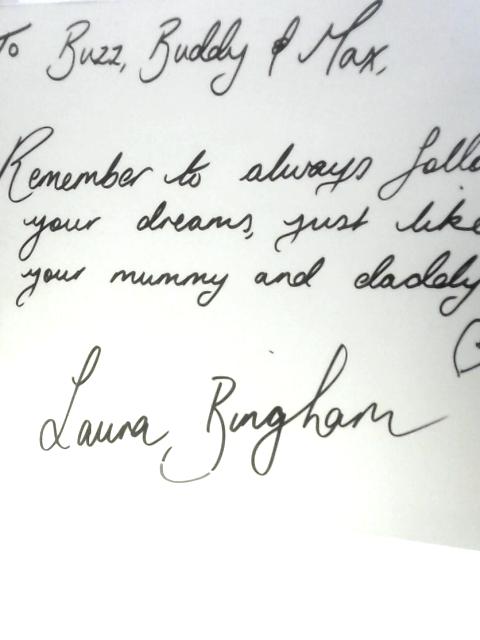 To Buzz, Buddy & Max,
Remember to always follo
your dreams, just like
your mummy and daddy
Laura Bingham